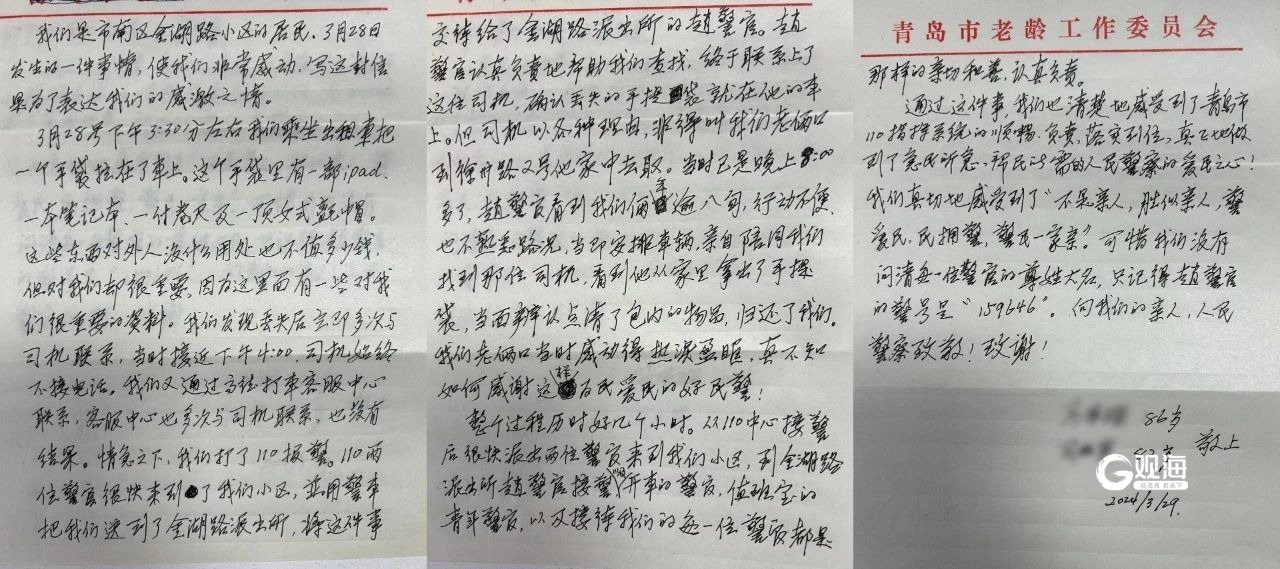 我们是市南区金湖路小区的居民，3月28日
发生的一件事情，使我们非常感动，写这封信
是为了表达我们的感激之情。
3月28号下午3:30分左右我们乘坐出租车把
一个手袋拉在了车上。这个手袋里有一部ipad、
一本笔记本、一付卷尺及一顶女式毡帽。
这些东西对外人没什么用处也不值多少钱，
但对我们却很重要，因为这里面有一些对我
们很重要的资料。我们发现丢失后立即多次与
司机联系，当时接近下午4:00，司机始终
不接电话。我们又通过高德打车客服中心
联系，客服中心也多次与司机联系，也没有
结果。情急之下，我们打了110报警。110两
位警官很快来到了我们小区，并用警车
把我们送到了金湖路派出所，将这件事
交待给了金湖路派出所的赵警官。赵
警官认真负责地帮助我们查找，终于联系上了
这位司机，确认丢失的手提袋就在他的车
上。但司机以各种理由，非得叫我们老俩口
到徐州路又号他家中去取。当时已是晚上8:00
多了，赵警官看到我们俩年逾八旬，行动不便，
也不熟悉路况，当即安排车辆，亲自陪同我们
找到那位司机，看到他从家里拿出了手提
袋，当面辨认点清了包内的物品，归还了我们。
我们老俩口当时感动得热泪盈眶，真不知
如何感谢这样为民爱民的好民警！
整个过程历时好几个小时。从110中心接警
后很快派出两位警官来到我们小区，到金湖路
派出所赵警官接警、开车的警官，值班室的
青年警官，以及接待我们的每一位警官都是
青岛市老龄工作委员会
那样的亲切和善，认真负责。
通过这件事，我们也清楚地感受到了青岛市
110指挥系统的顺畅、负责，落实到位，真正地做
到了急民所急、帮民所需的人民警察的爱民之心！
我们真切地感受到了“不是亲人，胜似亲人，警
爱民，民拥警，警民一家亲”。可惜我们没有
问清每一位警官的尊姓大名，只记得赵警官
的警号是“159646”。向我们的亲人，人民
警察致敬！致谢！
86岁
岁 敬上
2024/3/29.
G观海